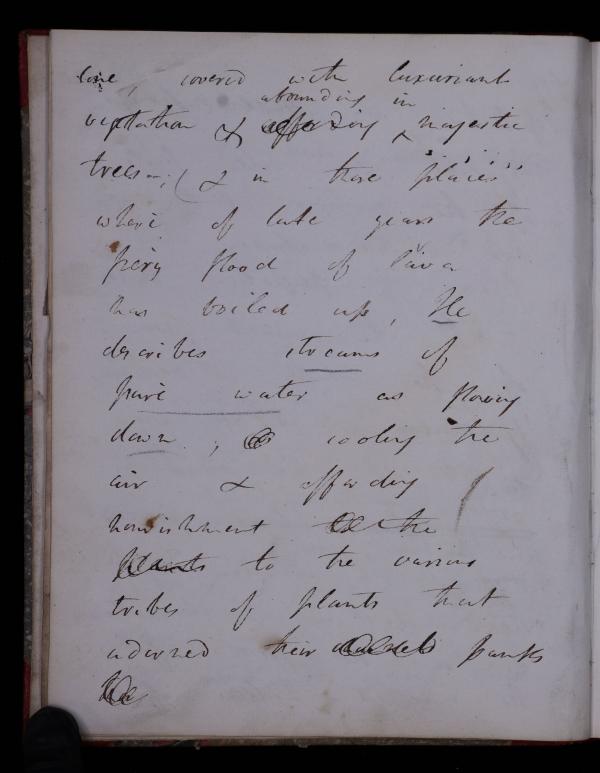 love, covered with luxuriant
abounding in
vegetation & affording majestic
trees; & in those places
where of late years the
fiery flood of lava
has boiled up, He
describes streams of
pure water as flowing
down, cooling the
air & affording
nourishment to the
plants to the various
tribes of plants that
adorned their banks